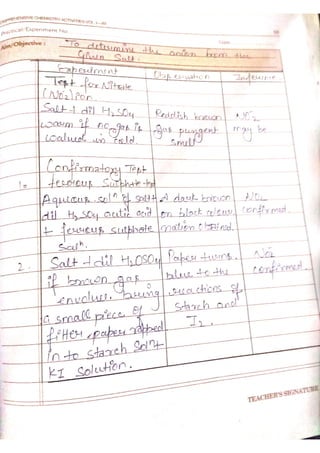 COMPREHENSIVE CHEMISTRY ACTIVITIES VOL. I—XII
Practical/Experiment No.
Date
59
Aim/Objective : To determine the anion from the
Given Salt.
Experiment Observation Inference
Test for Nitrate
(NO2) ion.
Salt + dil H2SO4 Reddish brown NO2
warm if no gas is gas pungent may be
in cold. smell
Confirmatory Test
1. ferrous Sulphate test
Aqueous soln of salt + A dark brown NO2
dil H2SO4 acetic acid or black colour confirmed.
+ ferrous sulphate obtained.
Soln.
2. Salt + dil H2SO4 Paper turns NO2
if brown gas blue to the confirmed.
bring reactions of
a small piece of starch and
filter paper I2.
in to starch Soln +
KI solution.
TEACHER'S SIGNATURE